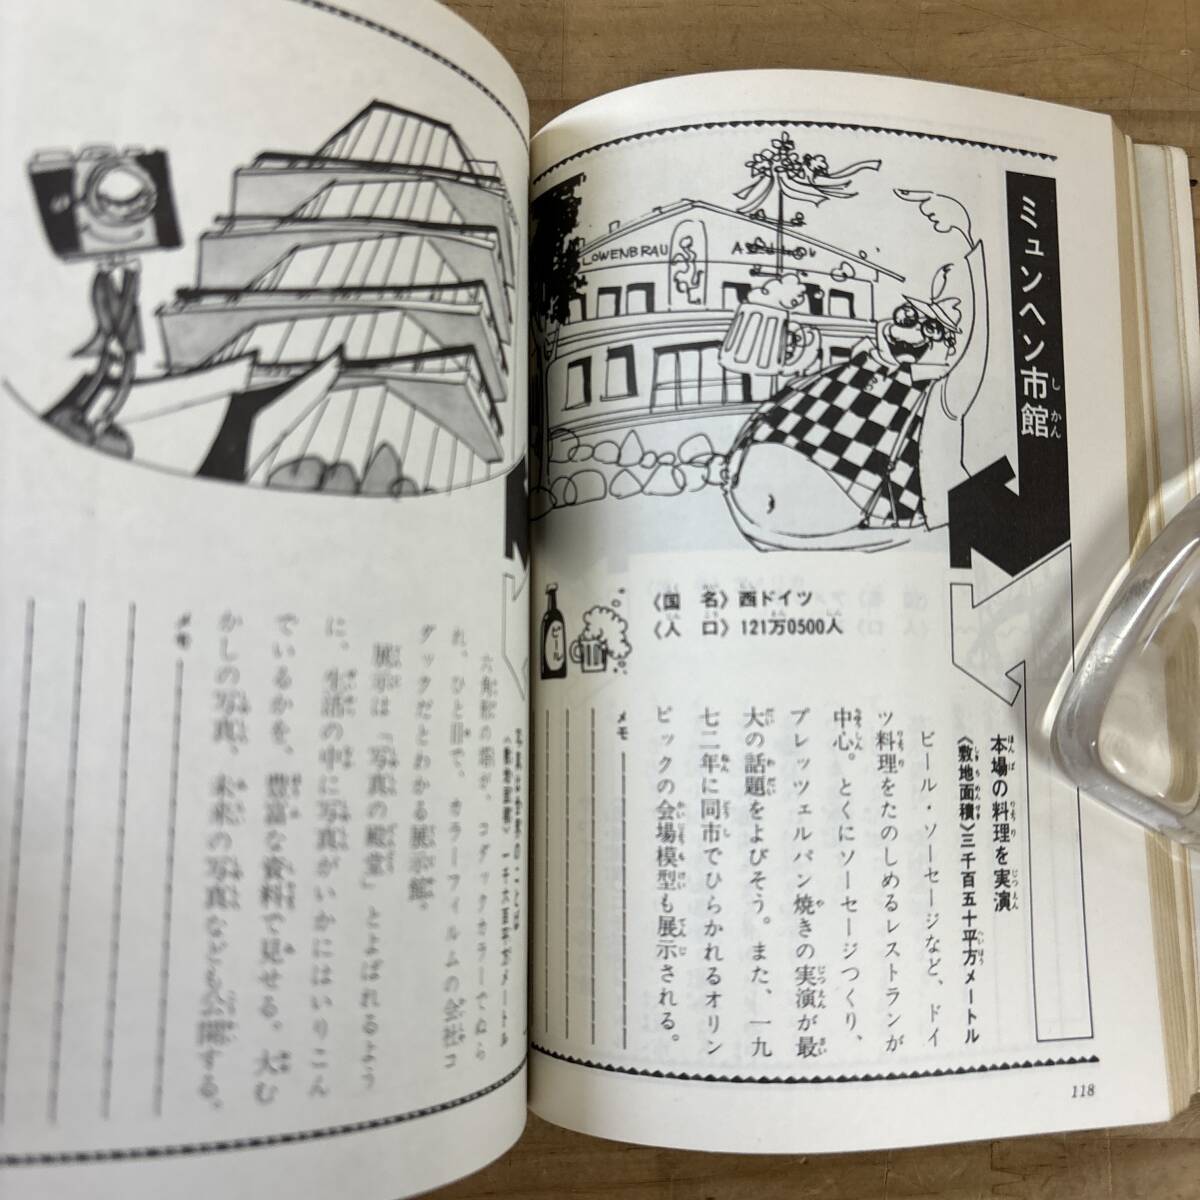 ミュンヘン市館
しかん
LOWENBRAU
〈国名〉西ドイツ
〈人口〉121万0500人
ビール
本場の料理を実演
《敷地面積》三千百五十平方メートル
ビール・ソーセージなど、ドイ
ツ料理をたのしめるレストランが
中心。とくにソーセージつくり、
プレッツェルパン焼きの実演が最
大の話題をよびそう。また、一九
七二年に同市でひらかれるオリン
ピックの会場模型も展示される。
メモ
118
六角松の塔が、コダックカラーでぬら
れ、ひと目で、カラーフィルムの会社コ
ダックだとわかる展示館。
展示は「写真の殿堂」とよばれるよう
に、生活の中に写真がいかにはいりこん
でいるかを、豊富な資料で見せる。大む
かしの写真、未来の写真なども公開する。
メモ